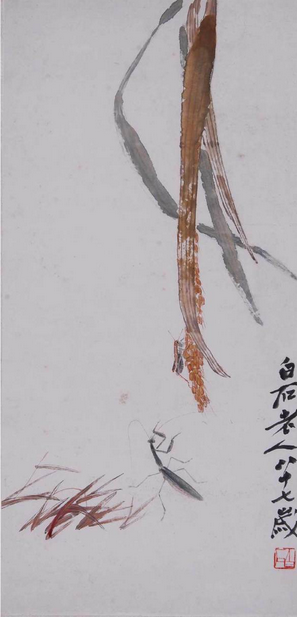 白石老人八十七歲